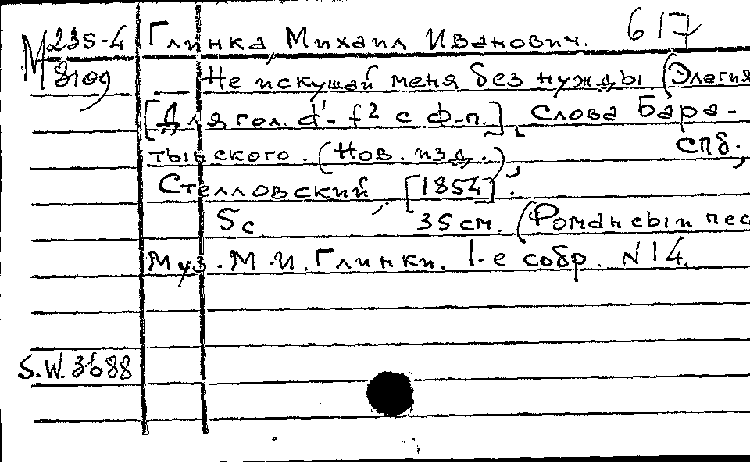 М 235-4 Глинка, Михаил Иванович. 617
810д Не искушай меня без нужды (Элегия
[Для гол. d'-f² с ф-п.], слова Бара-
тынского. (Нов. изд.), СПб.,
Стелловский, [1854].
5с 35 см. (Романсы и пес
муз. М.И. Глинки. 1-е собр. N 14.
S.W. 3688